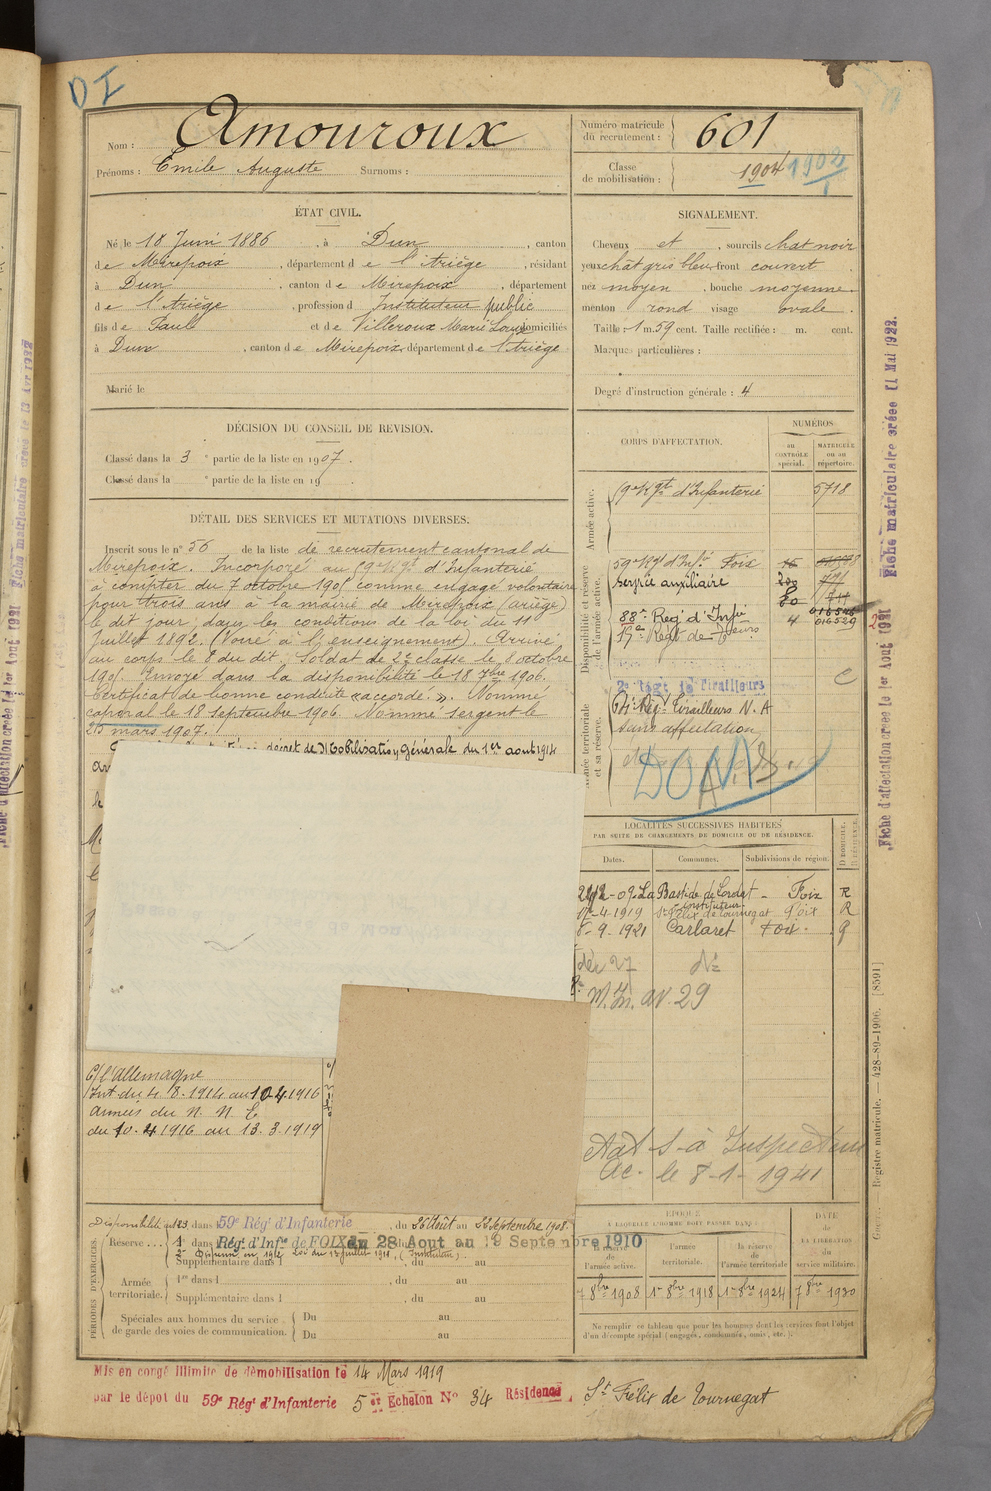 DI
Nom : Amouroux
Prénoms : Emile Auguste Surnoms :
Numéro matricule du recrutement : 601
Classe de mobilisation : 1904 1902
ÉTAT CIVIL.
Né le 18 Juin 1886, à Dun, canton
de Mirepoix, département de l'Ariège, résidant
à Dun, canton de Mirepoix, département
de l'Ariège, profession d Instituteur public
fils de Paul et de Villeroux Marie Louise domiciliés
à Dun, canton de Mirepoix, département de l'Ariège
Marié le
SIGNALEMENT.
Cheveux et, sourcils chat noir
yeux chât gris bleu front couvert
nez moyen, bouche moyenne
menton rond visage ovale.
Taille : 1 m. 59 cent. Taille rectifiée : m. cent.
Marques particulières :
Degré d'instruction générale : 4
DÉCISION DU CONSEIL DE REVISION.
Classé dans la 3e partie de la liste en 1907.
Classé dans la e partie de la liste en 19
DÉTAIL DES SERVICES ET MUTATIONS DIVERSES.
Inscrit sous le n° 56 de la liste de recrutement cantonal de
Mirepoix. Incorporé au 59e Rgt d'Infanterie
à compter du 7 octobre 1905 comme engagé volontaire
pour trois ans à la mairie de Mirepoix (ariège)
le dit jour, dans les conditions de la loi du 11
Juillet 1892. (Voué à l'enseignement). Arrivé
au corps le 8 du dit. Soldat de 2e classe le 8 octobre
1905. Envoyé dans la disponibilité le 18 7bre 1906.
Certificat de bonne conduite « accordé ». Nommé
caporal le 18 Septembre 1906. Nommé sergent le
25 mars 1907.
décret de Mobilisation Générale du 1er aout 1914
C/ l'Allemagne
Int du 4.8.1914 au 10.4.1916
Armées du N. N E
du 10.4 1916 au 13.3.1919
CORPS D'AFFECTATION.
NUMÉROS
AU CONTRÔLE spécial.
MATRICULE OU AU répertoire.
Armée active.
59e Rgt d'Infanterie 5718
Disponibilité et réserve de l'armée active.
59e Rgt d'Inf.ie Foix
Service auxiliaire
88e Reg d'Infie 016546
17e Régt de 4 016529
2e Régt de Tirailleurs
Armée territoriale et sa réserve.
Tirailleurs N. A
Sans affectation
DOM
LOCALITÉS SUCCESSIVES HABITÉES
PAR SUITE DE CHANGEMENTS DE DOMICILE OU DE RÉSIDENCE.
Dates. Communes. Subdivisions de région. D DOMICILE. R RÉSIDENCE.
La Bastide de Lordat - Foix R
instituteur
4-1919 St Félix de Tournegat Foix R
9-1921 Carlaret Foix.
dec 27
av. 29
Aat S. à Inspection
Ac. le 8-1-1941
PÉRIODES D'EXERCICES.
Disponibilité dans 59e Régt d'Infanterie, du 26 Août au 22 Septembre 1908.
Réserve ... 1e dans Régt d'Infie de FOIX du 28 Aout au 19 Septembre 1910
2e Dispensé en 1912 (Instituteur).
Supplémentaire dans l, du au
Armée territoriale. 1re dans l, du au
Supplémentaire dans l, du au
Spéciales aux hommes du service de garde des voies de communication. Du au
Du au
ÉPOQUE
À LAQUELLE L'HOMME DOIT PASSER DANS :
la réserve de l'armée active.
l'armée territoriale.
la réserve de l'armée territoriale
DATE de LA LIBÉRATION du service militaire.
7 8bre 1908 1er 8bre 1918 1er 8bre 1924 7 8bre 1930
Ne remplir ce tableau que pour les hommes dont les services font l'objet
d'un décompte spécial (engagés, condamnés, omis, etc.).
Mis en congé illimité de démobilisation le 14 Mars 1919
par le dépôt du 59e Régt d'Infanterie 5 Echelon N° 34 Résidence St Félix de Tournegat
Fiche matriculaire créée 11 Mai 1922.
Fiche d'affectation créée le 1er Aout 1921
Registre matricule. — 428-89-1906. [8591]
Fiche matriculaire créée le 13 Avr 1922
Fiche d'affectation créée le 1er Aout 1921